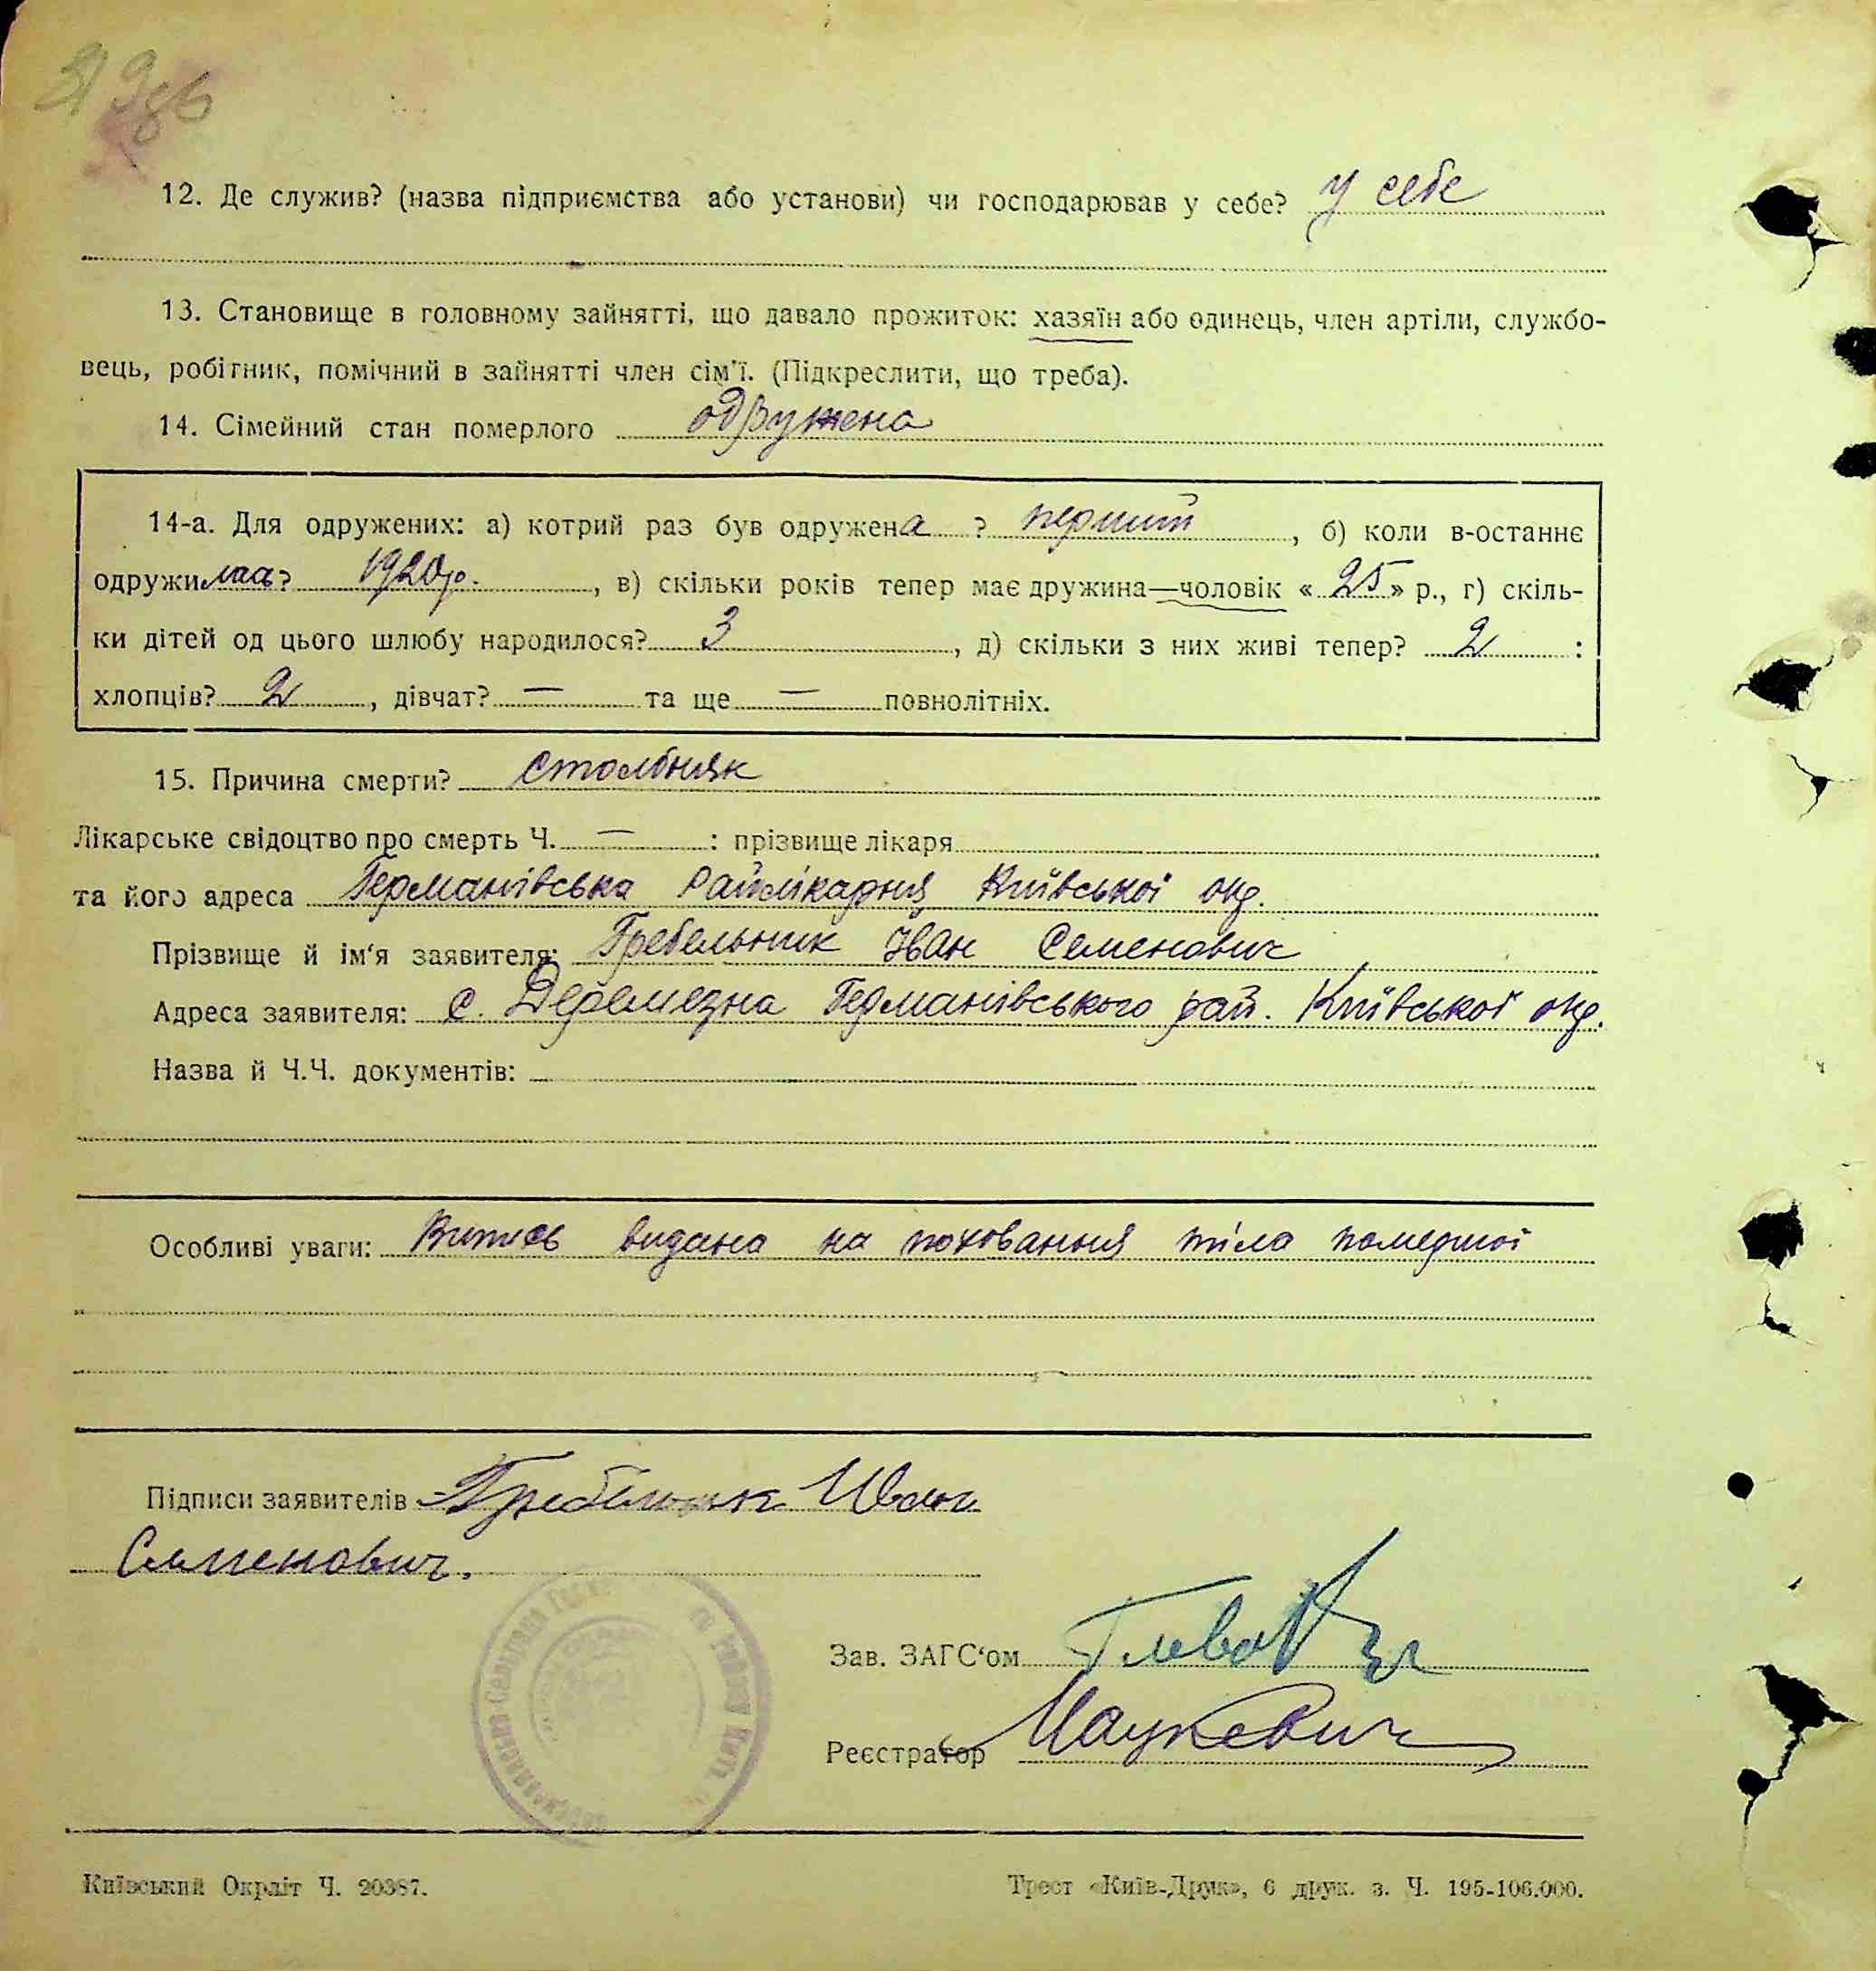 12. Де служив? (назва підприємства або установи) чи господарював у себе? у себе
13. Становище в головному зайнятті, що давало прожиток: хазяїн або одинець, член артіли, службо-
вець, робітник, помічний в зайнятті член сім'ї. (Підкреслити, що треба).
14. Сімейний стан померлого одружена
14-а. Для одружених: а) котрий раз був одружена ? перший, б) коли в-останнє
одружилась? 1920р., в) скільки років тепер має дружина—чоловік «25» р., г) скіль-
ки дітей од цього шлюбу народилося? 3, д) скільки з них живі тепер? 2 :
хлопців? 2, дівчат? — та ще — повнолітніх.
15. Причина смерти? столбняк
Лікарське свідоцтво про смерть Ч. — : прізвище лікаря
та його адреса Германівська Райлікарня Київської окр.
Прізвище й ім'я заявителя: Гребельник Іван Семенович
Адреса заявителя: с. Деремезна Германівського рай. Київської окр.
Назва й Ч.Ч. документів:
Особливі уваги: Випись видана на поховання тіла помершої
Підписи заявителів Гребельник Иван
Семенович.
Зав. ЗАГС'ом
Реєстратор Мацкевич
Київський Окрліт Ч. 20387.
Трест «Київ-Друк», 6 друк. з. Ч. 195-106.000.